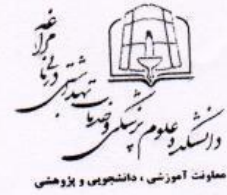 دانشکده علوم پزشکی و خدمات بهداشتی درمانی مراغه
معاونت آموزشی ، دانشجویی و پژوهشی